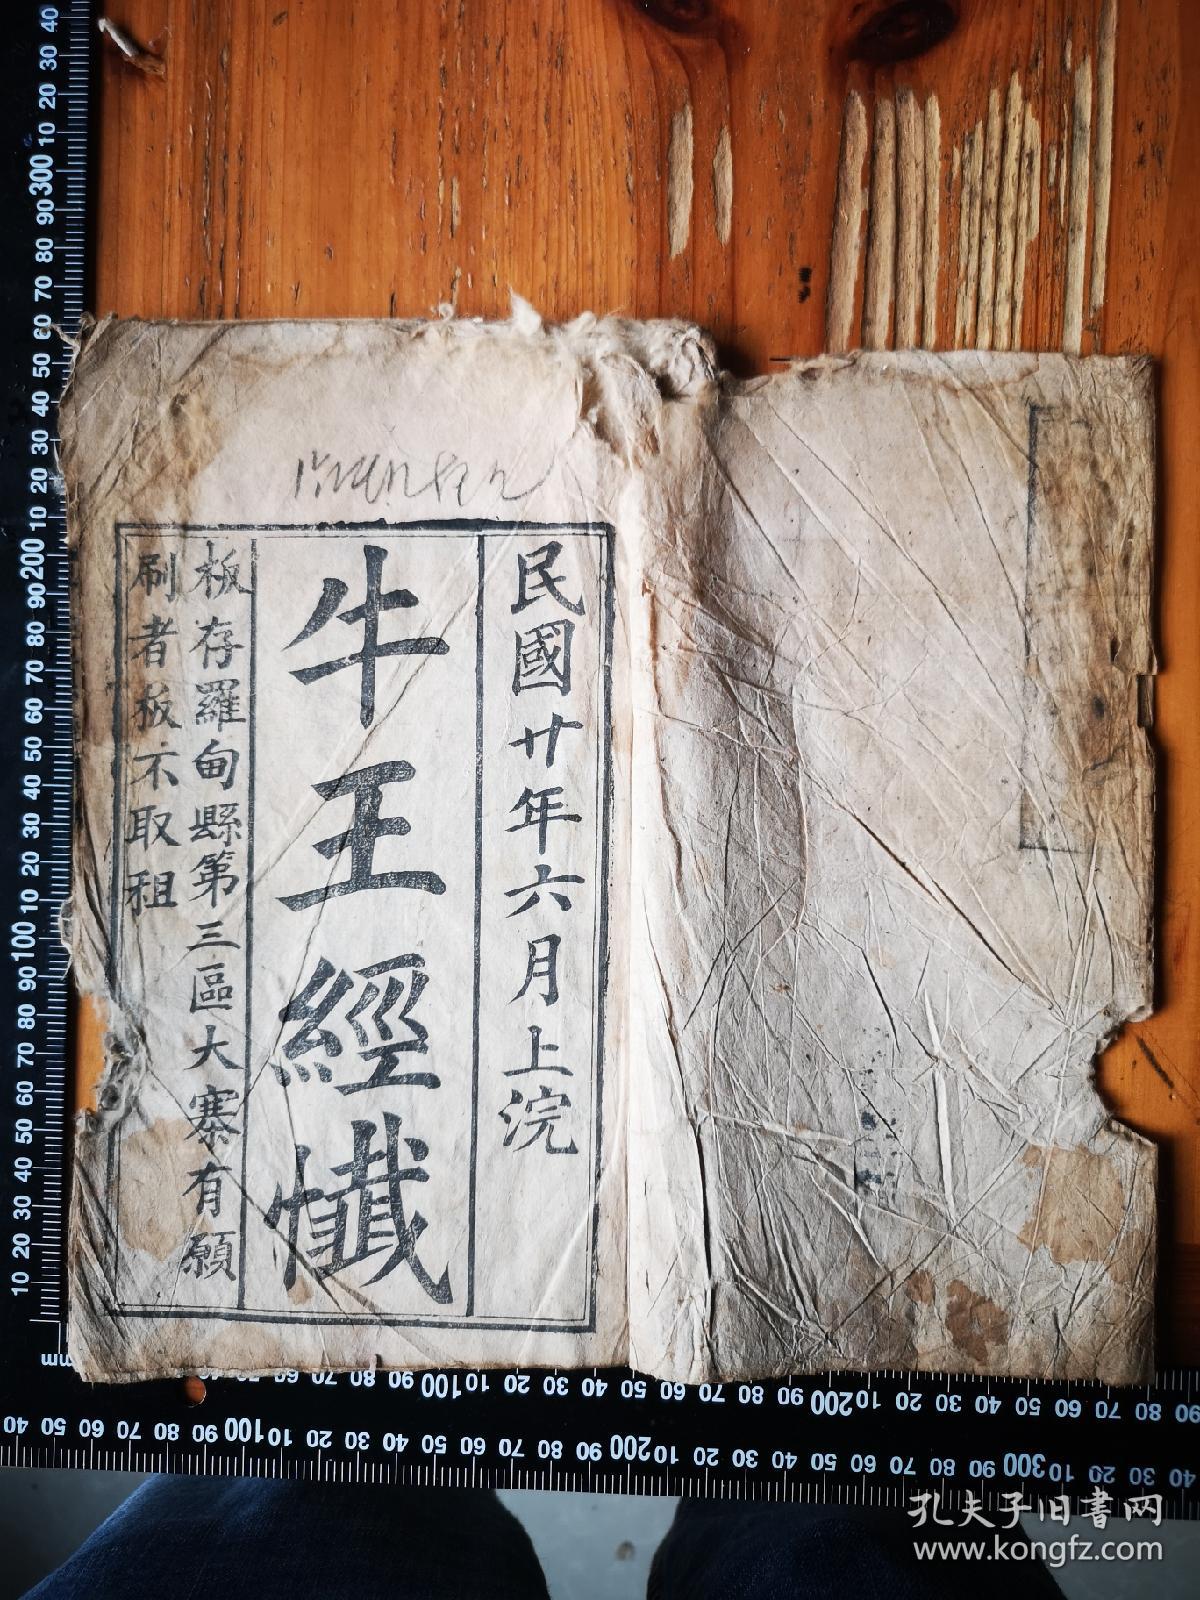 民國廿年六月上浣
牛王經懺
板存羅甸縣第三區大寨有願
刷者板不取租
孔夫子旧書网
www.kongfz.com